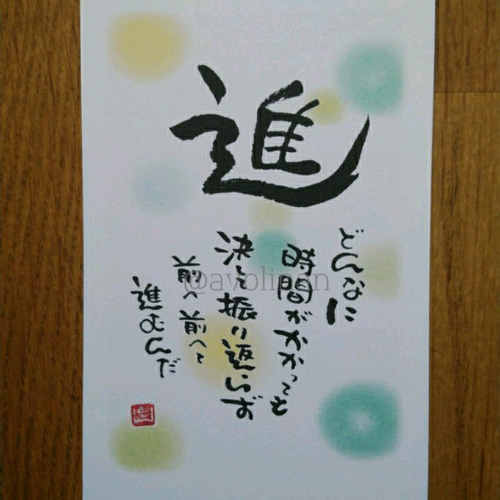 進
どんなに
時間がかかっても
決して振り返らず
前へ前へと
進むんだ
@avolinon